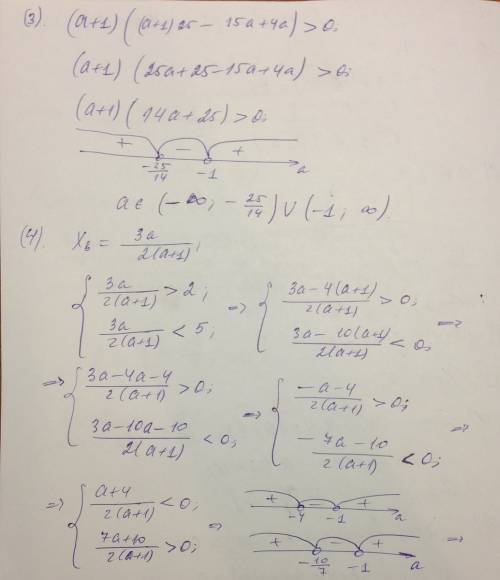 (3). (a+1)((a+1)25 - 15a+4a)>0;
(a+1)(25a+25-15a+4a)>0;
(a+1)(14a+25)>0;
+ - +
-25/14 -1 a
a ∈ (-∞; -25/14) ∪ (-1; ∞).
(4). X_b = 3a/2(a+1);
{ 3a/2(a+1) > 2; 3a/2(a+1) < 5; => { 3a-4(a+1)/2(a+1) > 0; 3a-10(a+1)/2(a+1) < 0; =>
=> { 3a-4a-4/2(a+1) > 0; 3a-10a-10/2(a+1) < 0; => { -a-4/2(a+1) > 0; -7a-10/2(a+1) < 0; =>
=> { a+4/2(a+1) < 0; 7a+10/2(a+1) > 0; =>
+ - +
-4 -1 a
+ - +
-10/7 -1 a
=>